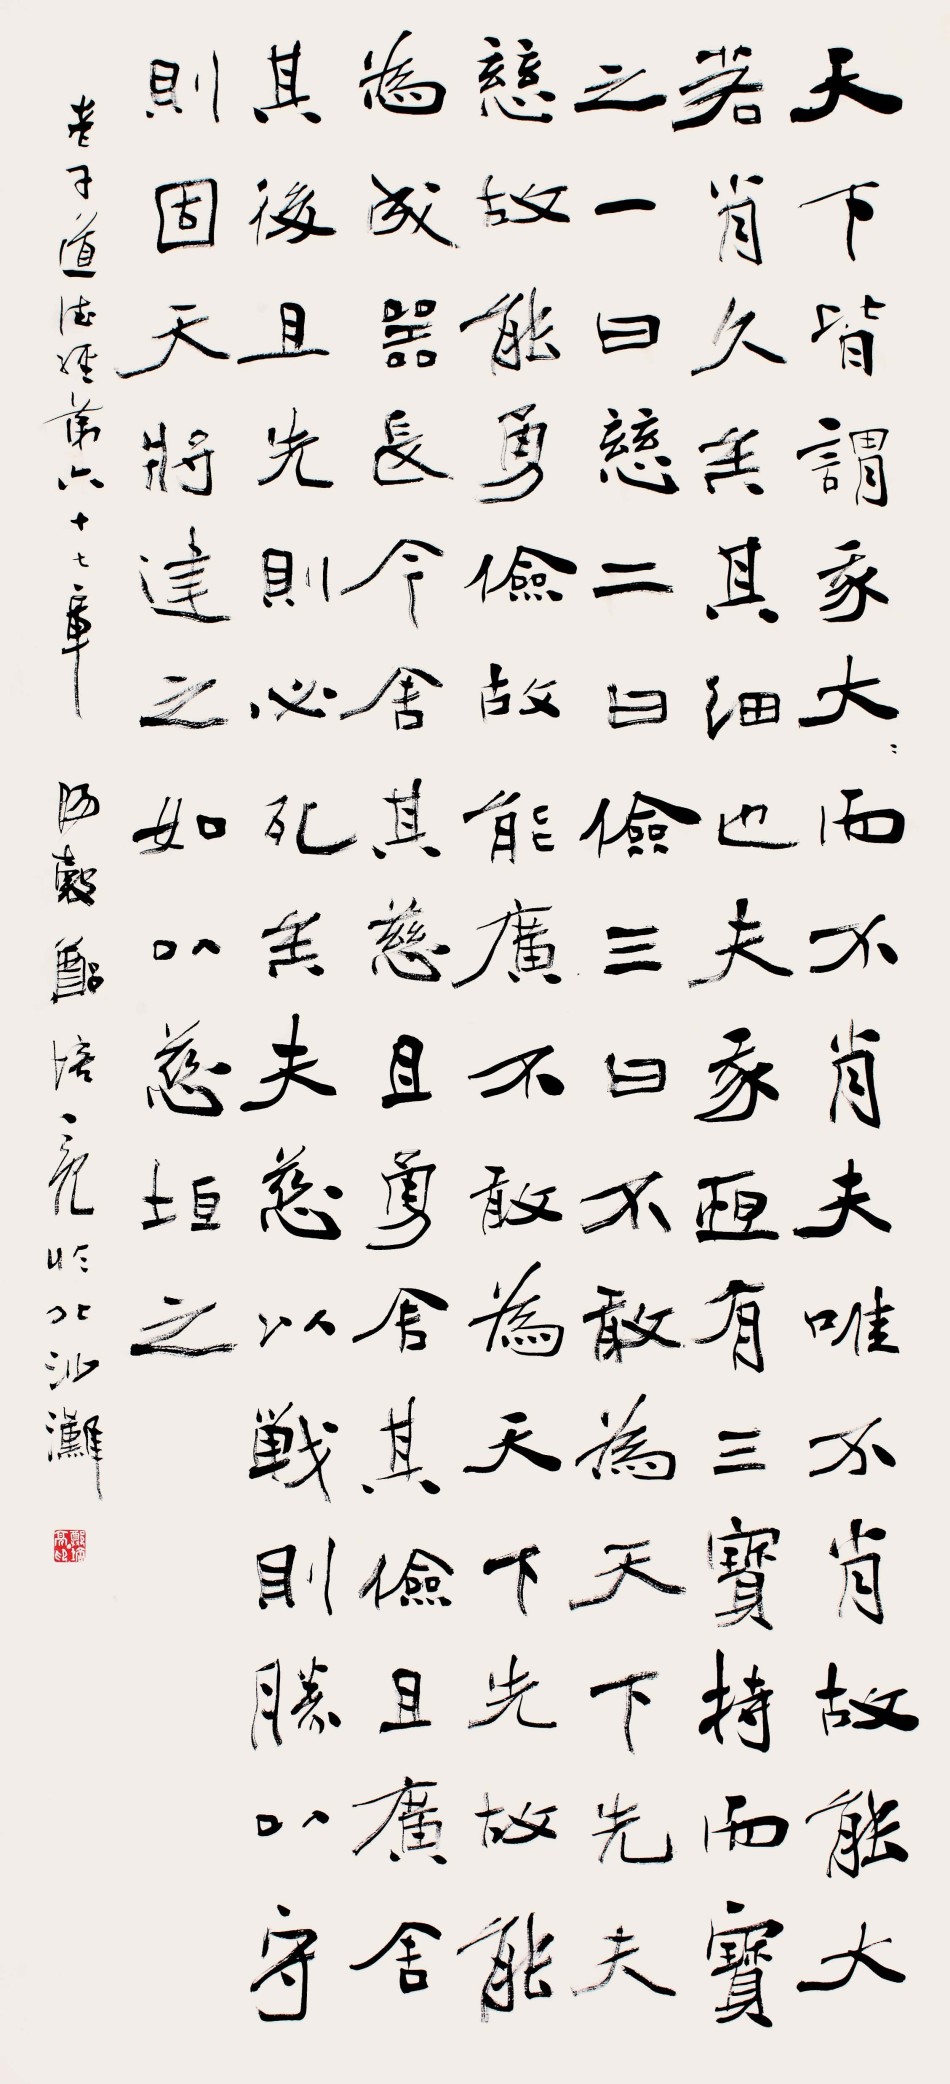 天下皆謂我大〻而不肖夫唯不肖故能大
若肖久矣其細也夫我恆有三寶持而寶
之一曰慈二曰儉三曰不敢為天下先夫
慈故能勇儉故能廣不敢為天下先故能
為成器長今舍其慈且勇舍其儉且廣舍
其後且先則必死矣夫慈以戰則勝以守
則固天將建之如以慈垣之
老子道德經第六十七章 陽穀鄭培亮於北沙灘